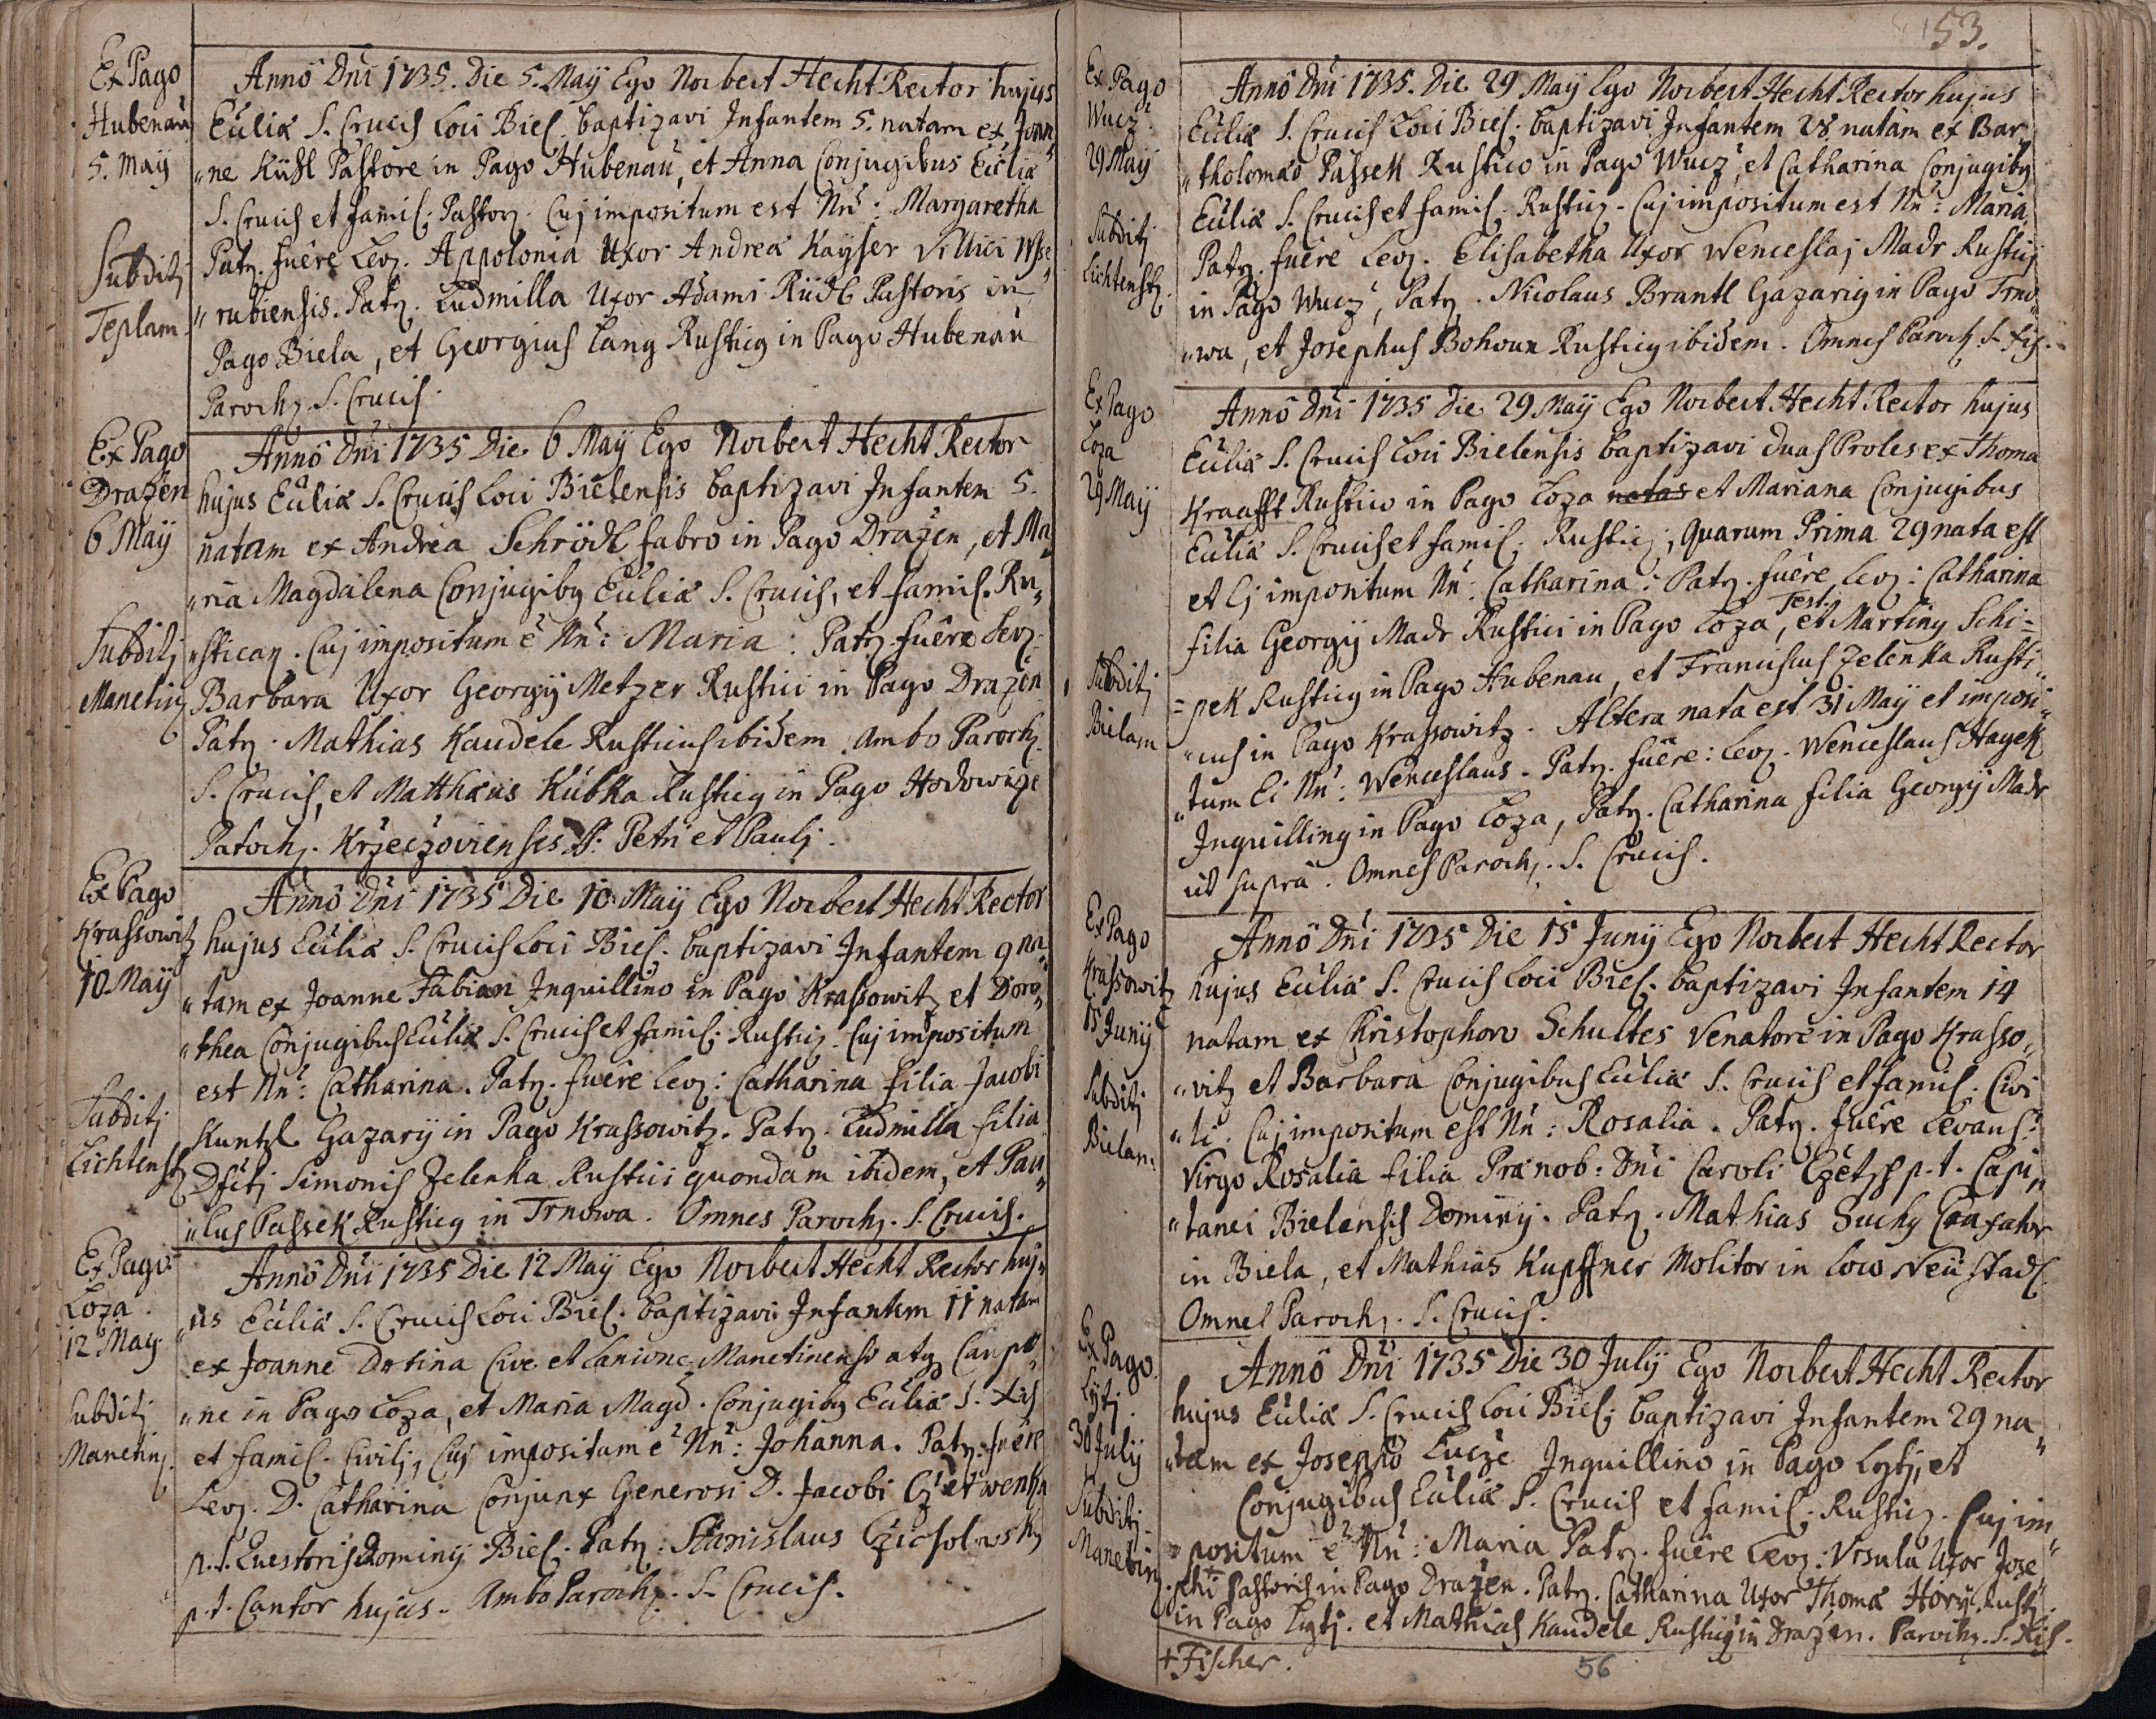 Ex Pago
Hubenau
5. Maÿ
Subditj
Teplam.
Anno Dni 1735. Die 5. Maÿ Ego Norbert Hecht Rector hujus
Ecliæ S. Crucis Loci Biel. baptizavi Infantem 5. natam ex Joan„
„ne Kühl Pastore in Pago Hubenau, et Anna Conjugibus Ecliæ
S. Crucis et famil. Pastorz. Cuj impositum est Nn: Margaretha
Patrz. fuere Levz. Appolonia Uxor Andreæ Kayser Villici Wsse„
„rubiensis. Patrz. Ludmilla Uxor Adami Rüdl Pastoris in
Pago Biela, et Georgius Lang Rusticg in Pago Hubenau
Parochz. S. Crucis.
Ex Pago
Drazen
6 Maÿ
Subditj
Manetinz
Anno Dni 1735 Die 6 Maÿ Ego Norbert Hecht Rector
hujus Ecliæ S. Crucis Loci Bielensis baptizavi Infantem 5.
natam ex Andrea Schrödl fabro in Pago Drazen, et Ma„
„ria Magdalena Conjugibg Ecliæ S. Crucis, et famil. Ru„
„sticanz. Cuj impositum e Nn: Maria: Patrz. fuere Levz.
Barbara Uxor Georgÿ Metzer Rustici in Pago Drazen
Patrz. Mathias Kaudele Rusticus ibidem. ambo Parochz.
S. Crucis, et Matthæus Kubka Rusticg in Pago Hodowize
Parochz. Krzeczoviensis S: Petri et Paulj.
Ex Pago
Krassowitz
10 Maÿ
Subditj
Lichtenstz
Anno Dni 1735 Die 10 Maÿ Ego Norbert Hecht Rector
hujus Ecliæ S. Crucis Loci Biel. baptizavi Infantem 9 na„
„tam ex Joanne Fabian Inquillino in Pago Krassowitz et Doro„
„thea Conjugibus Ecliæ S. Crucis et famil. Rusticz. Cuj impositum
est Nn: Catharina. Patrz. fuere Levz: Catharina filia Jacobi
Kuntzl Gazarÿ in Pago Krassowitz. Patrz. Ludmilla filia
Dfctj Simonis Zelenka Rustici quondam ibidem, et Pau„
„lus Passek Rusticg in Trnowa. Omnes Parochz. S. Crucis.
Ex Pago
Loza.
12 May
Subditj
Manetinz.
Anno Dni 1735 Die 12 Maÿ Ego Norbert Hecht Rector huj„
„us Ecliæ S. Crucis Loci Biel. baptizavi Infantem 11 natam
ex Joanne Dostina Cive et Lanione Manetinensi atqz Caupo„
„ne in Pago Loza, et Maria Magd. Conjugibg Ecliæ S. Xis
et famil. Civilj, Cuj impositum e Nn: Johanna. Patrz. fuere
Levz. D. Catharina Conjunx Generosi D. Jacobi Czetwenka
p. t. Quæstoris Dominÿ Biel. Patrz: Stanislaus Czicholowskÿ
p. t. Cantor hujus. Ambo Parochz. S. Crucis.
53.
Ex Pago
Wucz.
29 Maÿ
Subditj
Lichtenstz.
Anno Dni 1735. Die 29 Maÿ Ego Norbert Hecht Rector hujus
Ecliæ S. Crucis Loci Biel. baptizavi Infantem 28 natam ex Bar„
„tholomæo Passek Rustico in Pago Wucz, et Catharina Conjugibg
Ecliæ S. Crucis et famil. Rusticz. Cuj impositum est Nn: Maria,
Patrz. fuere Levz. Elisabetha Uxor Wenceslaj Madr Rusticj
in Pago Wucz, Patrz. Nicolaus Brantl Gazarig in Pago Trno„
„wa, et Josephus Bohoun Rusticg ibidem. Omnes Paroch. S. Xis.
Ex Pago
Loza
29 Maÿ
Subditj
Bielam
Anno Dni 1735 Die 29 Maÿ Ego Norbert Hecht Rector hujus
Ecliæ S. Crucis Loci Bielensis baptizavi duas Proles ex Thoma
Kraafft Rustico in Pago Loza natas et Mariana Conjugibus
Ecliæ S. Crucis et famil. Rusticz, Quarum Prima 29 nata est
et Ej impositum Nn: Catharina: Patrz. fuere Levz: Catharina
filia Georgÿ Madr Rustici in Pago Loza, Test. et Marting Schi=
=pek Rusticg in Pago Hubenau, et Franciscus Zelenka Rusti„
„cus in Pago Krassowitz. Altera nata est 31 Maÿ et imposi„
„tum Ei Nn: Wenceslaus. Patrz. fuere: Levz. Wenceslaus Hayek
Inquilling in Pago Loza, Patrz. Catharina filia Georgÿ Madr
ut supra. Omnes Parochz. S. Crucis.
Ex Pago
Krassowitz
15 Junÿ
Subditj
Bielam:
Anno Dni 1735 Die 15 Junÿ Ego Norbert Hecht Rector
hujus Ecliæ S. Crucis Loci Biel. baptizavi Infantem 14
natam ex Christophoro Schultes Venatore in Pago Krasso„
„vitz et Barbara Conjugibus Ecliæ S. Crucis et famil. Civi
„li. Cuj impositum est Nn: Rosalia. Patrz. fuere Levans:
Virgo Rosalia filia Prænob: Dni Caroli Czetzs p. t. Capi„
„tanei Bielensis Dominÿ. Patrz. Mathias Suchÿ
in Biela, et Mathias Kupffner Molitor in Loco Neustadl.
Omnes Parochz. S. Crucis.
Ex Pago
Lytj.
30 Julÿ
Subditj
Manetinz
Anno Dni 1735 Die 30 Julÿ Ego Norbert Hecht Rector
hujus Ecliæ S. Crucis Loci Biel. baptizavi Infantem 29 na„
„tam ex Josepho Lucze Inquillino in Pago Lytj, et
Conjugibus Ecliæ S. Crucis et famil. Rusticz. Cuj im„
„positum e Nn: Maria Patrz. fuere Levz: Ursula Uxor Jose„
„phi + Pastoris in Pago Drazen. Patrz. Catharina Uxor Thomæ Horÿ Rustj.
in Pago Lytj. et Mathias Kaudele Rusticg in Drazen. Parochz. S. Xis.
+ Fischer.
56